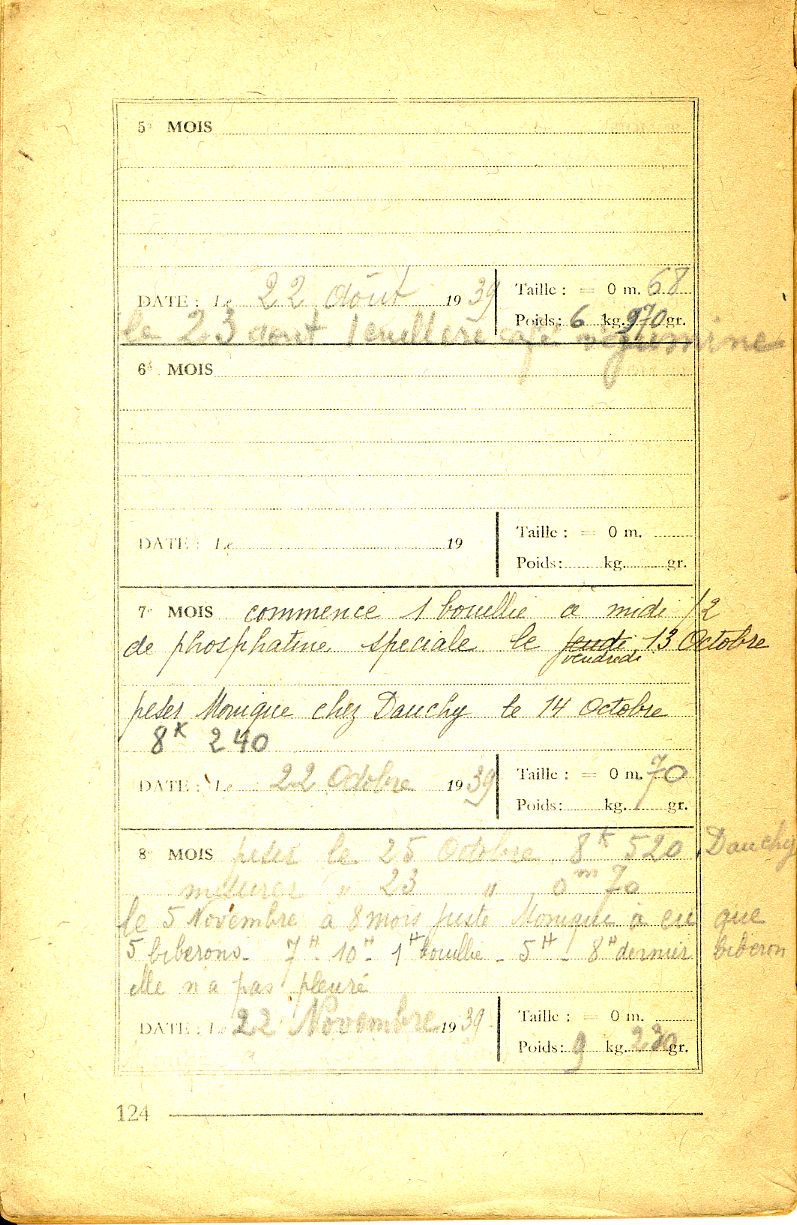 5e MOIS
DATE : Le 22 août 1939
Taille : = 0 m. 68
Poids: 6 kg. 970 gr.
le 23 aout 1 cuillere café végumine
6e MOIS
DATE : Le 19
Taille : = 0 m.
Poids: kg. gr.
7e MOIS commence 1 bouillie a midi /2
de phosphatine speciale le jeudi vendredi 13 Octobre
peser Monique chez Dauchy le 14 octobre
8K 240
DATE : Le 22 Octobre 1939
Taille : = 0 m. 70
Poids: kg. gr.
8e MOIS peser le 25 Octobre 8K 520 Dauchy
mesurer " 23 " 0m 70
le 5 Novembre a 8 mois juste Monique a eu que
5 biberons - 7H - 10H - 1H bouillie - 5H - 8H dernier biberon
elle n'a pas pleuré
DATE : Le 22 Novembre 1939
Taille : = 0 m.
Poids: 9 kg. 230 gr.
124